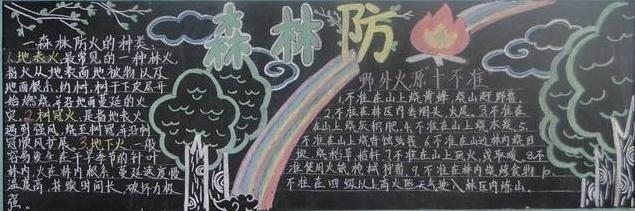 森林防
一森林防火的种类:
1地表火最常见的一种林火,
指火从地表面地被物以及
地面根示,幼树,树干下皮层开
始燃烧,并沿地面蔓延的火
灾。2树冠火是指地表火
遇到强风,烧至树冠,并沿树
冠顺风扩展。3地下火一般
容易发生在干旱季节的针叶
林内,火在林内根系,蔓延速度慢
温度高,持续时间长,破坏力极
强。
野外火源十不准
1.不准在山上烧黄蜂,烧山赶野兽。
2不准在林区内丢烟头,火屎。3不准在
在山上烧灰积肥。4.不准在山上烧木炭。5.
不准在山上烧香烧蜡钱 6.不准在山边林内烧田
边,烧稻草,秸秆。7.不准在山上玩火,或取暖。8.不
准使用火铳,枪械,狩猎。9.不准在林内烧烤食物。10.
不准在四级以上高火险天气进入林区内炼山。